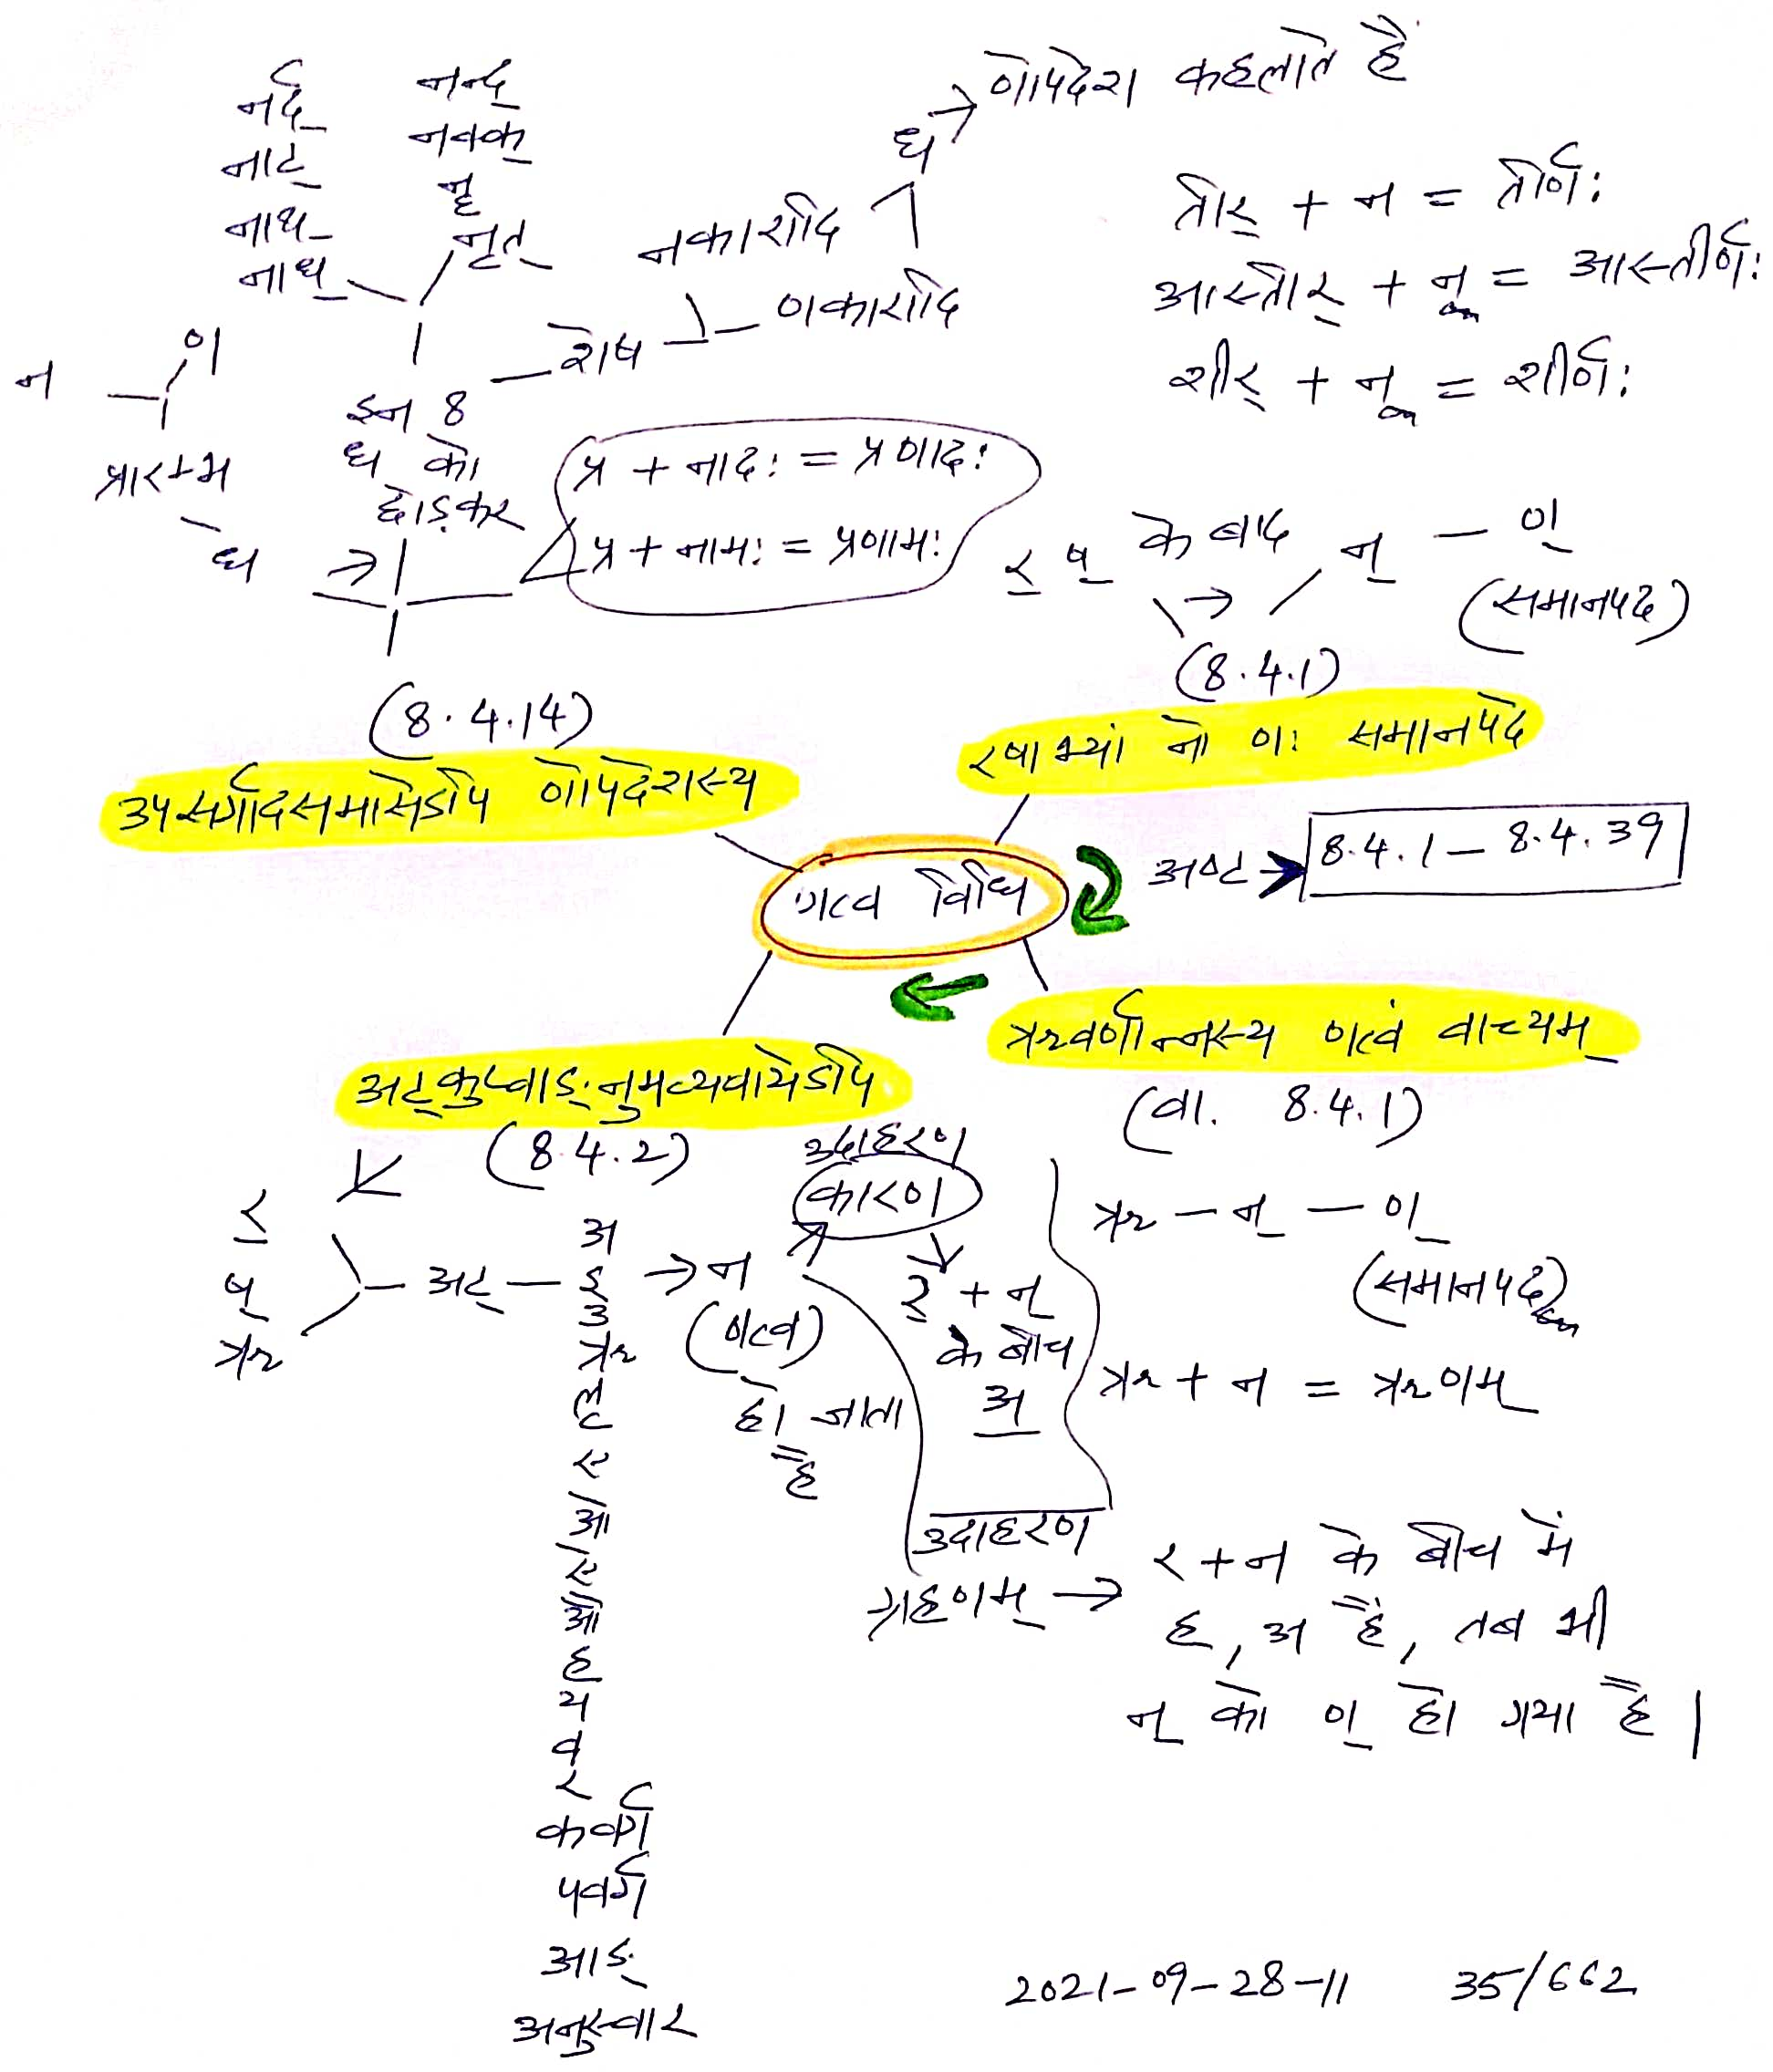 णोपदेश कहलाते हैं
नर्द् नन्द्
नाट् नक्क्
नाथ् नॄ
नाध् नृत्
ध
नकारादि
शेष — णकारादि
न ण
प्रारम्भ
ध
इन 8
ध को
छोड़कर
प्र + नादः = प्रणादः
प्र + नामः = प्रणामः
तीर् + न = तीर्णः
आस्तीर् + न् = आस्तीर्णः
शीर् + न् = शीर्णः
र् ष् के बाद न् — ण्
(समानपद)
(8.4.1)
रषाभ्यां नो णः समानपदे
(8.4.14)
उपसर्गादसमासेऽपि णोपदेशस्य
णत्व विधि
अष्ट → 8.4.1 — 8.4.39
ऋवर्णान्नस्य णत्वं वाच्यम्
(वा. 8.4.1)
ऋ — न् — ण्
(समानपद)
ऋ + न = ऋणम्
अट्कुप्वाङ्नुम्व्यवायेऽपि
(8.4.2)
र्
ष्
ऋ
— अट् —
अ
इ
उ
ऋ
लृ
ए
ओ
ऐ
औ
ह
य
व
र
कवर्ग
पवर्ग
आङ्
अनुस्वार
→ न
(णत्व)
हो जाता
है
उदाहरण
कारण
र् + न्
के बीच
अ
उदाहरण
ग्रहणम् → र + न के बीच में
ह, अ हैं, तब भी
न् को ण् हो गया है |
2021-09-28-11 35/662